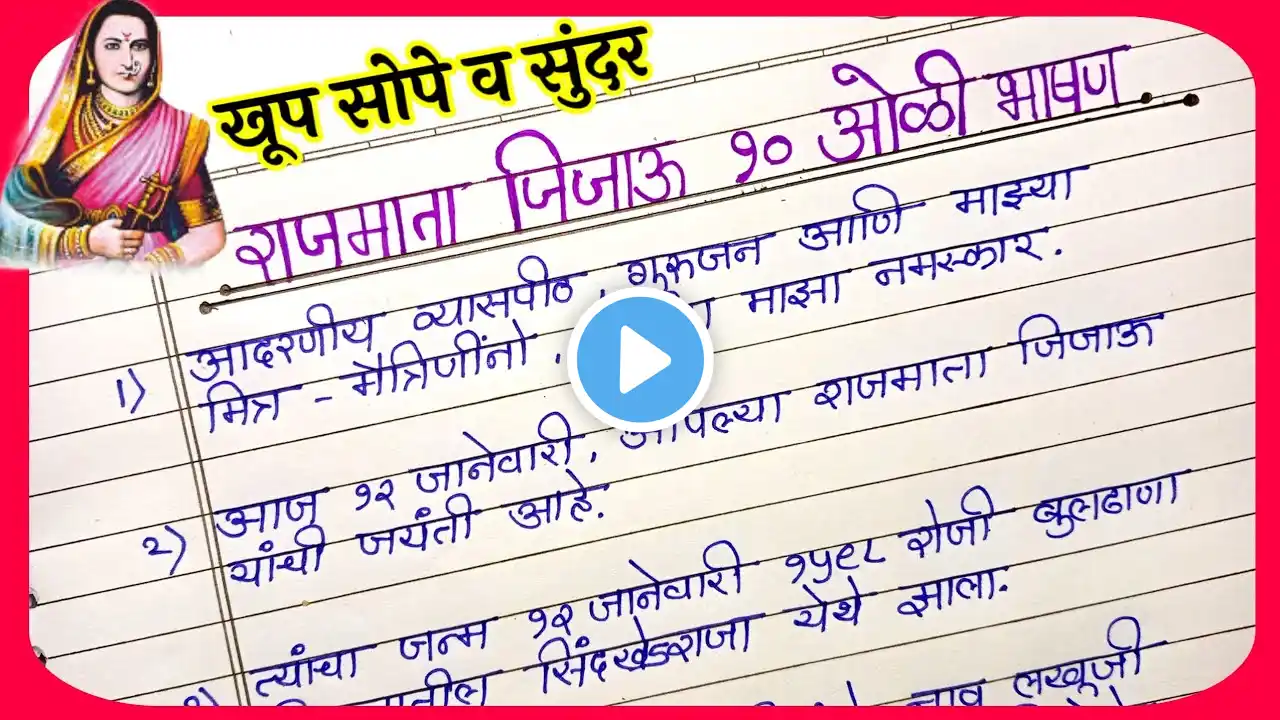 खूप सोपे व सुंदर
राजमाता जिजाऊ १० ओळी भाषण.
1) आदरणीय व्यासपीठ, गुरुजन आणि माझ्या
मित्र - मैत्रिणींनो, माझा नमस्कार.
2) आज १२ जानेवारी, आपल्या राजमाता जिजाऊ
यांची जयंती आहे.
त्यांचा जन्म १२ जानेवारी १५९८ रोजी बुलढाणा
सिंदखेडराजा येथे झाला.
नाव लखूजी